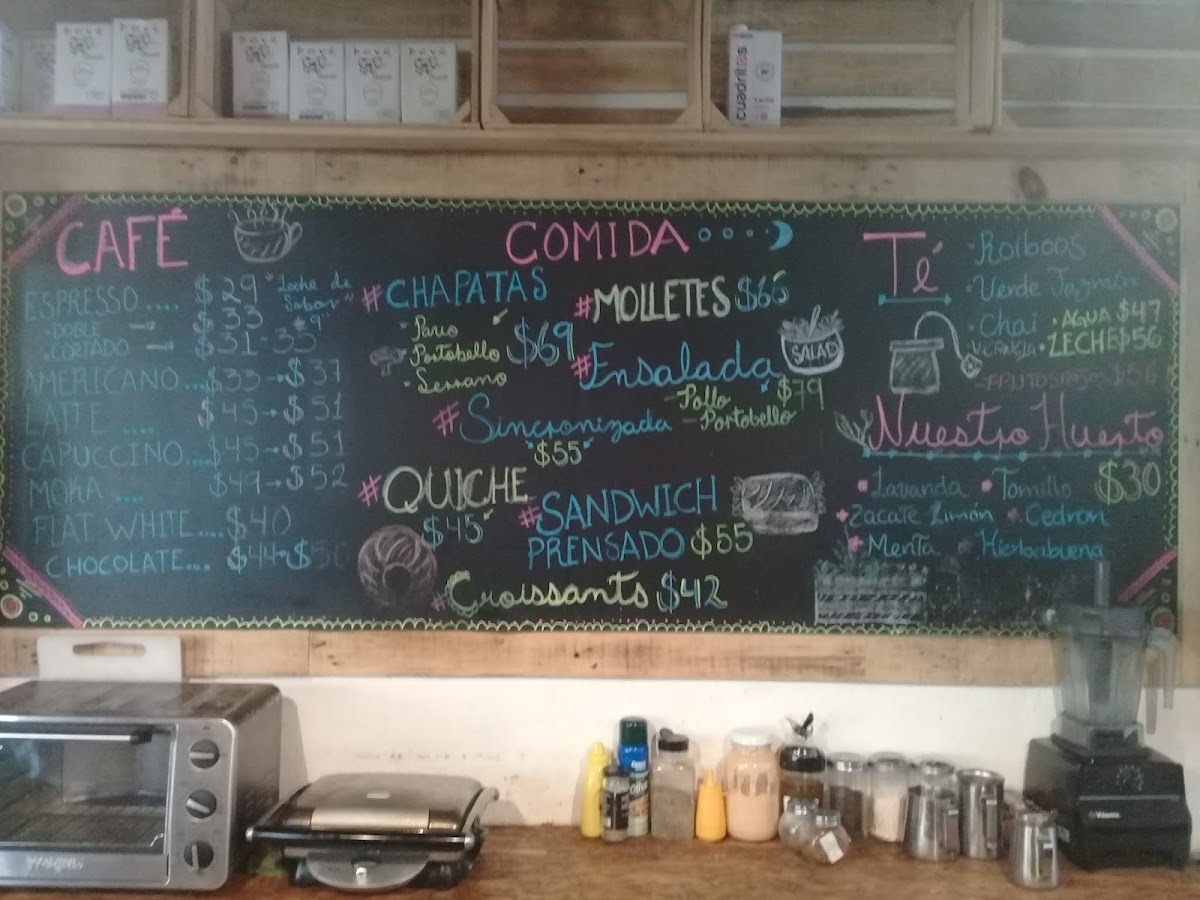 CAFÉ
ESPRESSO.... $29
DOBLE → $33
CORTADO → $31-35
"Leche de
Sabor"
$9
AMERICANO... $33→$37
LATTE .... $45→$51
CAPUCCINO.... $45→$51
MOKA .... $49→$52
FLAT WHITE.... $40
CHOCOLATE...
COMIDA
#CHAPATAS
- Pavo
- Portobello $69
- Serrano
#MOLLETES $66
#Ensalada
SALAD
- Pollo $79
- Portobello
#Sincronizada
$55
#QUICHE
$45
#SANDWICH
PRENSADO $55
#Croissants $42
Té
- Roiboos
- Verde Jazmín
- Chai
• AGUA $47
• LECHE $56
Nuestro Huerto
$30
• Lavanda • Tomillo
• Zacate Limón • Cedron
• Menta • Hierbabuena
cuadritos